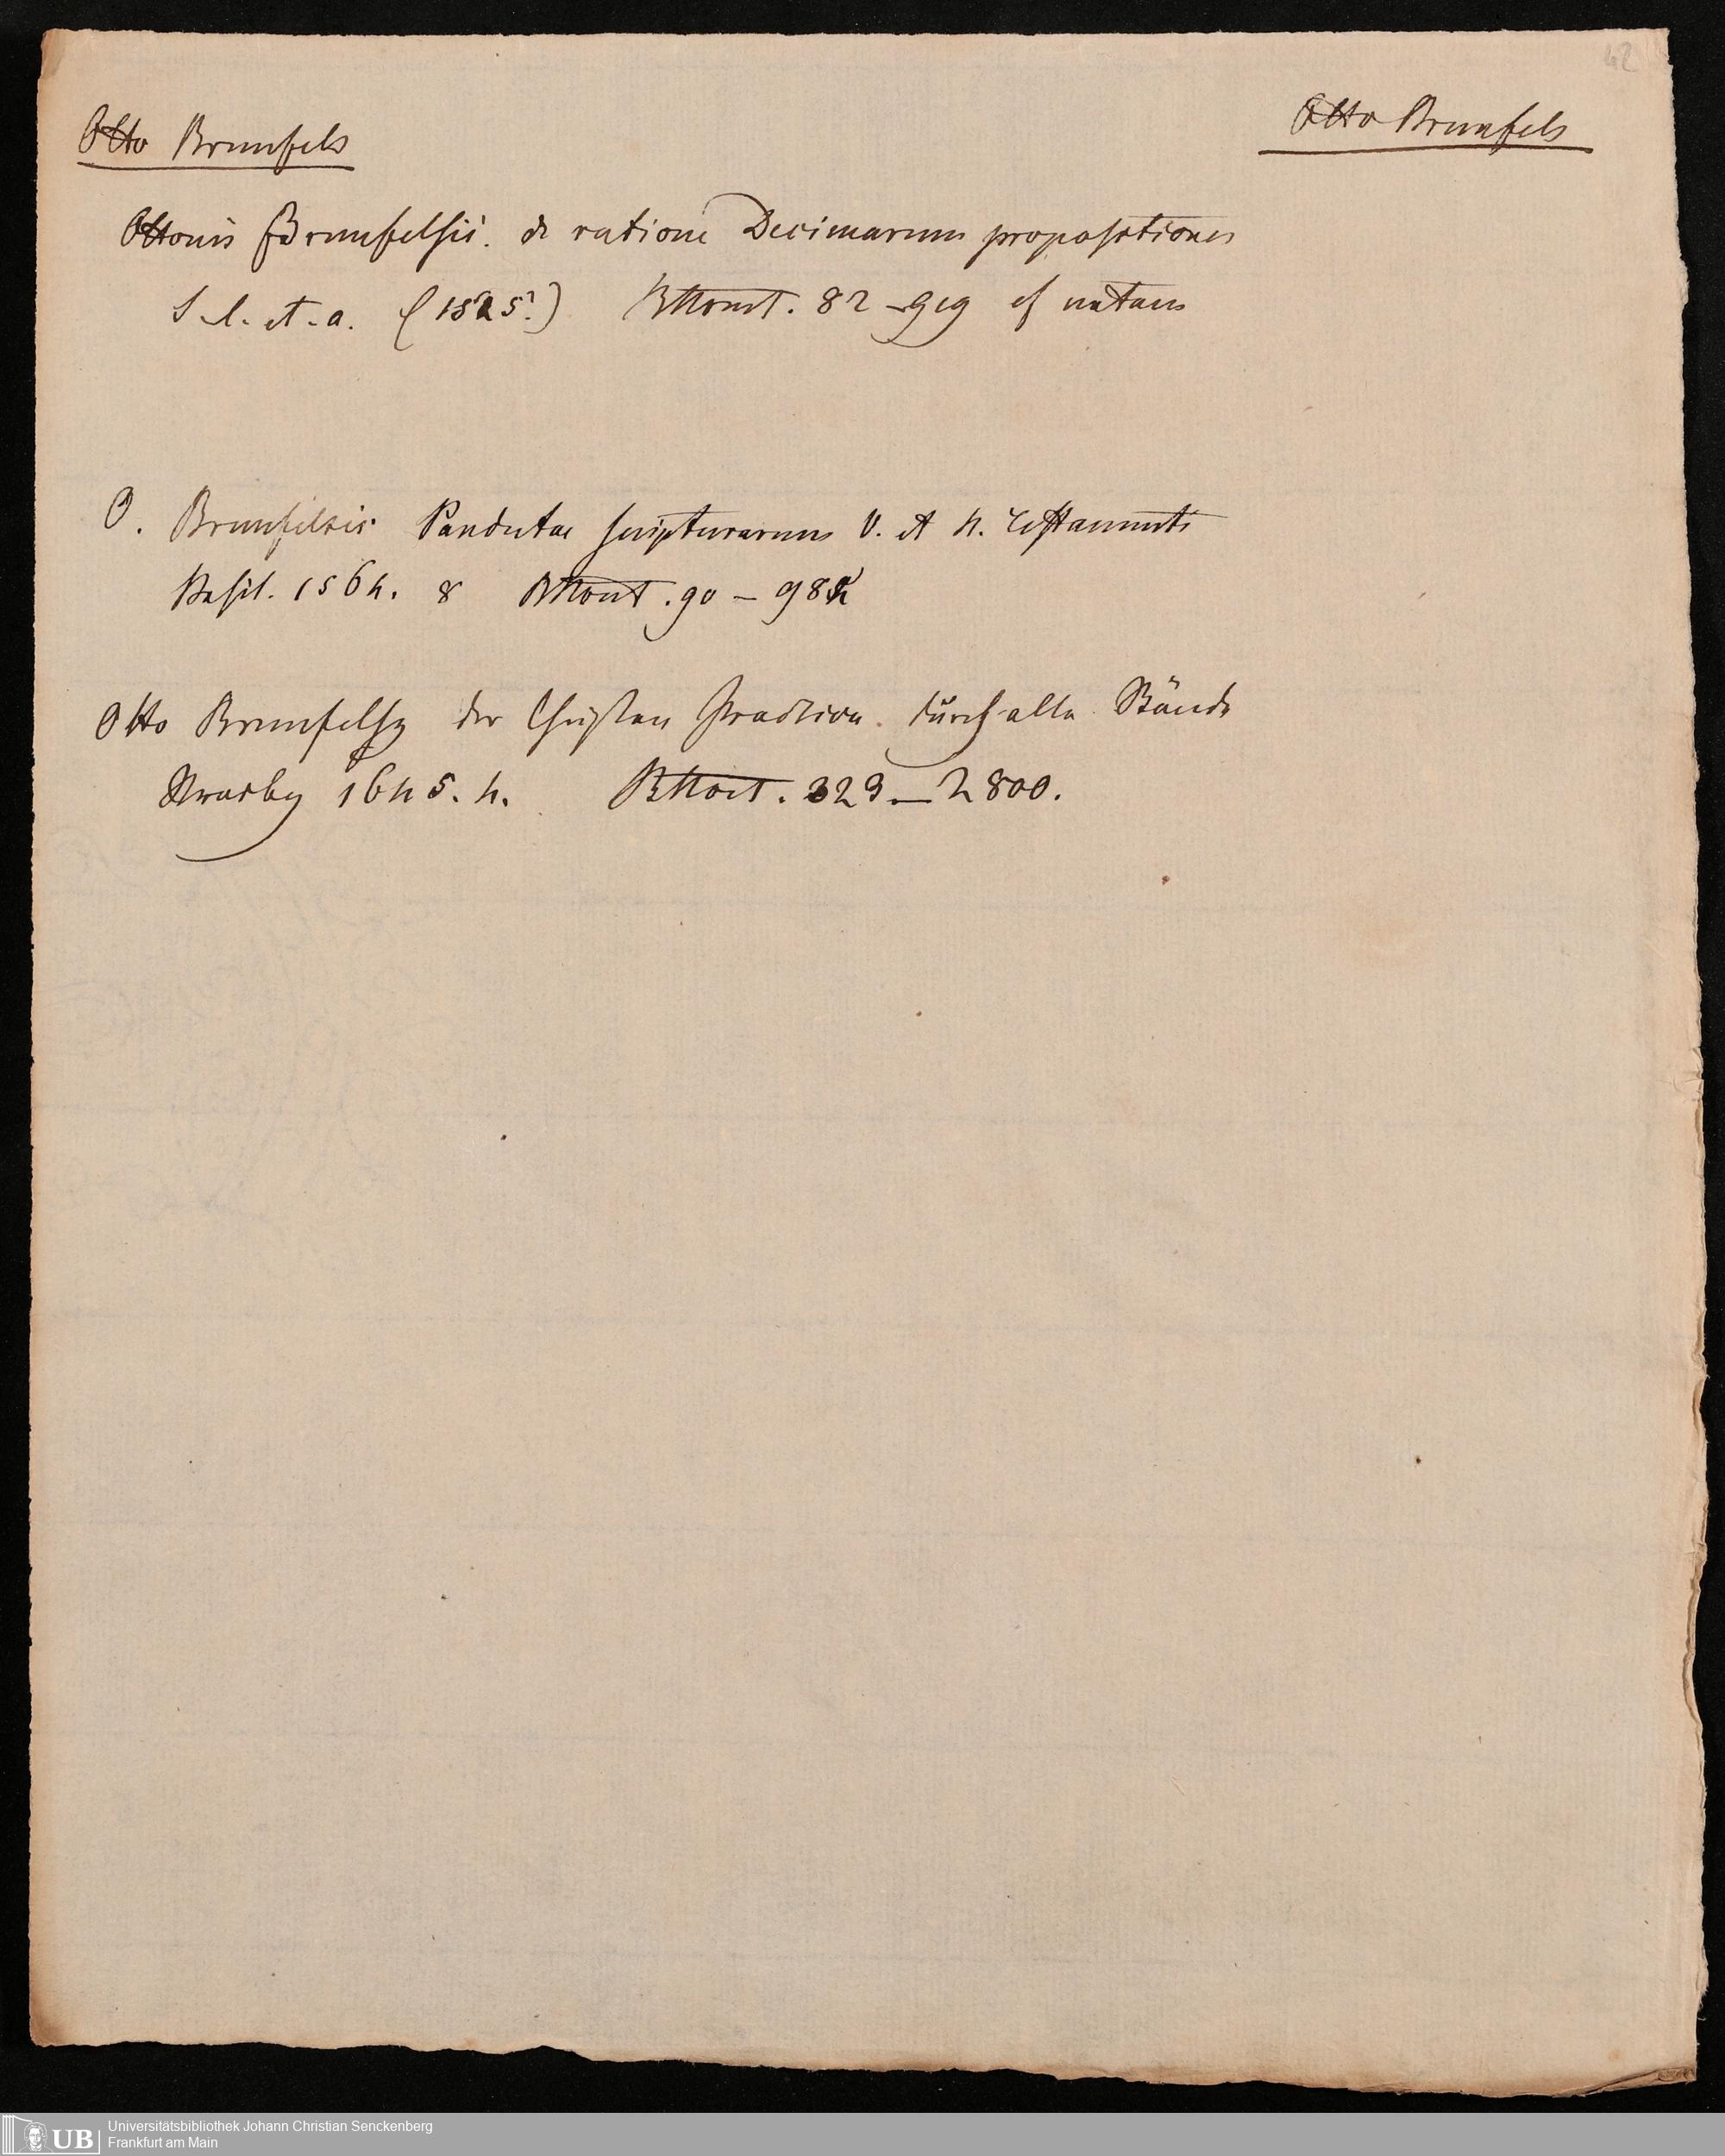 42
Otto Brunfels
Otto Brunfels
Ottonis Brunfelsii. de ratione Decimarum propositiones
S. l. et. a. (1525?) 82 – 919
O. Brunfelsii Pandectae scripturarum V. et N. Testamenti
Basil. 1564. 8 90 – 98
Otto Brunfelsz der Christen Practica. durch alle Stände
Strasbg 1645. 4. 329 – 2800.
Universitätsbibliothek Johann Christian Senckenberg
Frankfurt am Main
UB